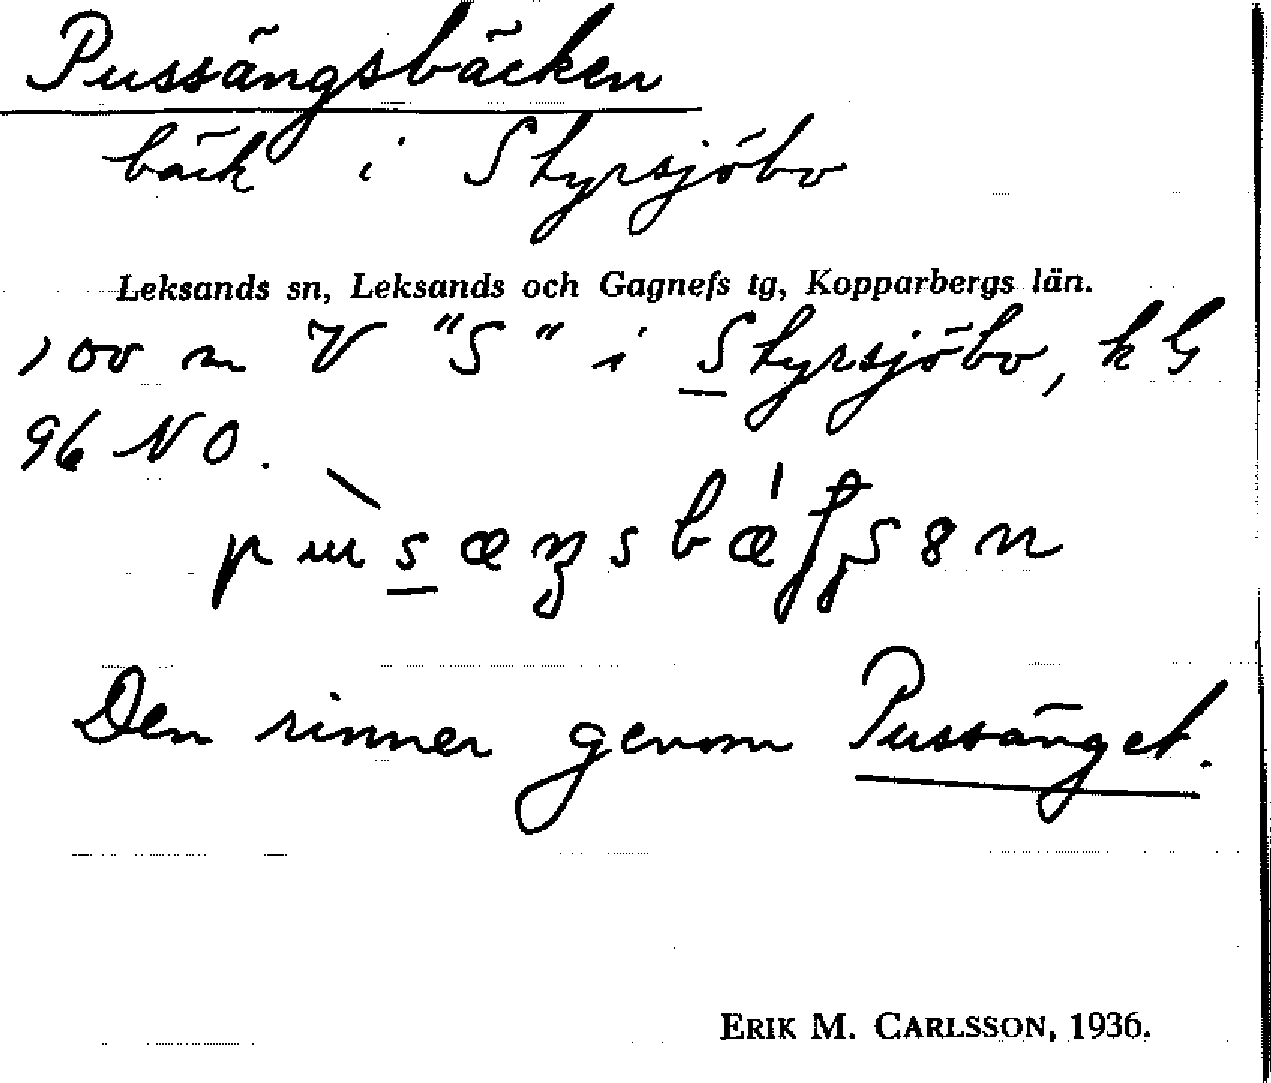 Pussängsbäcken
bäck i Styrsjöbo
Leksands sn, Leksands och Gagnefs tg, Kopparbergs län.
100 m V "S" i Styrsjöbo, k G
96 NO.
Den rinner genom Pussänget.
ERIK M. CARLSSON, 1936.